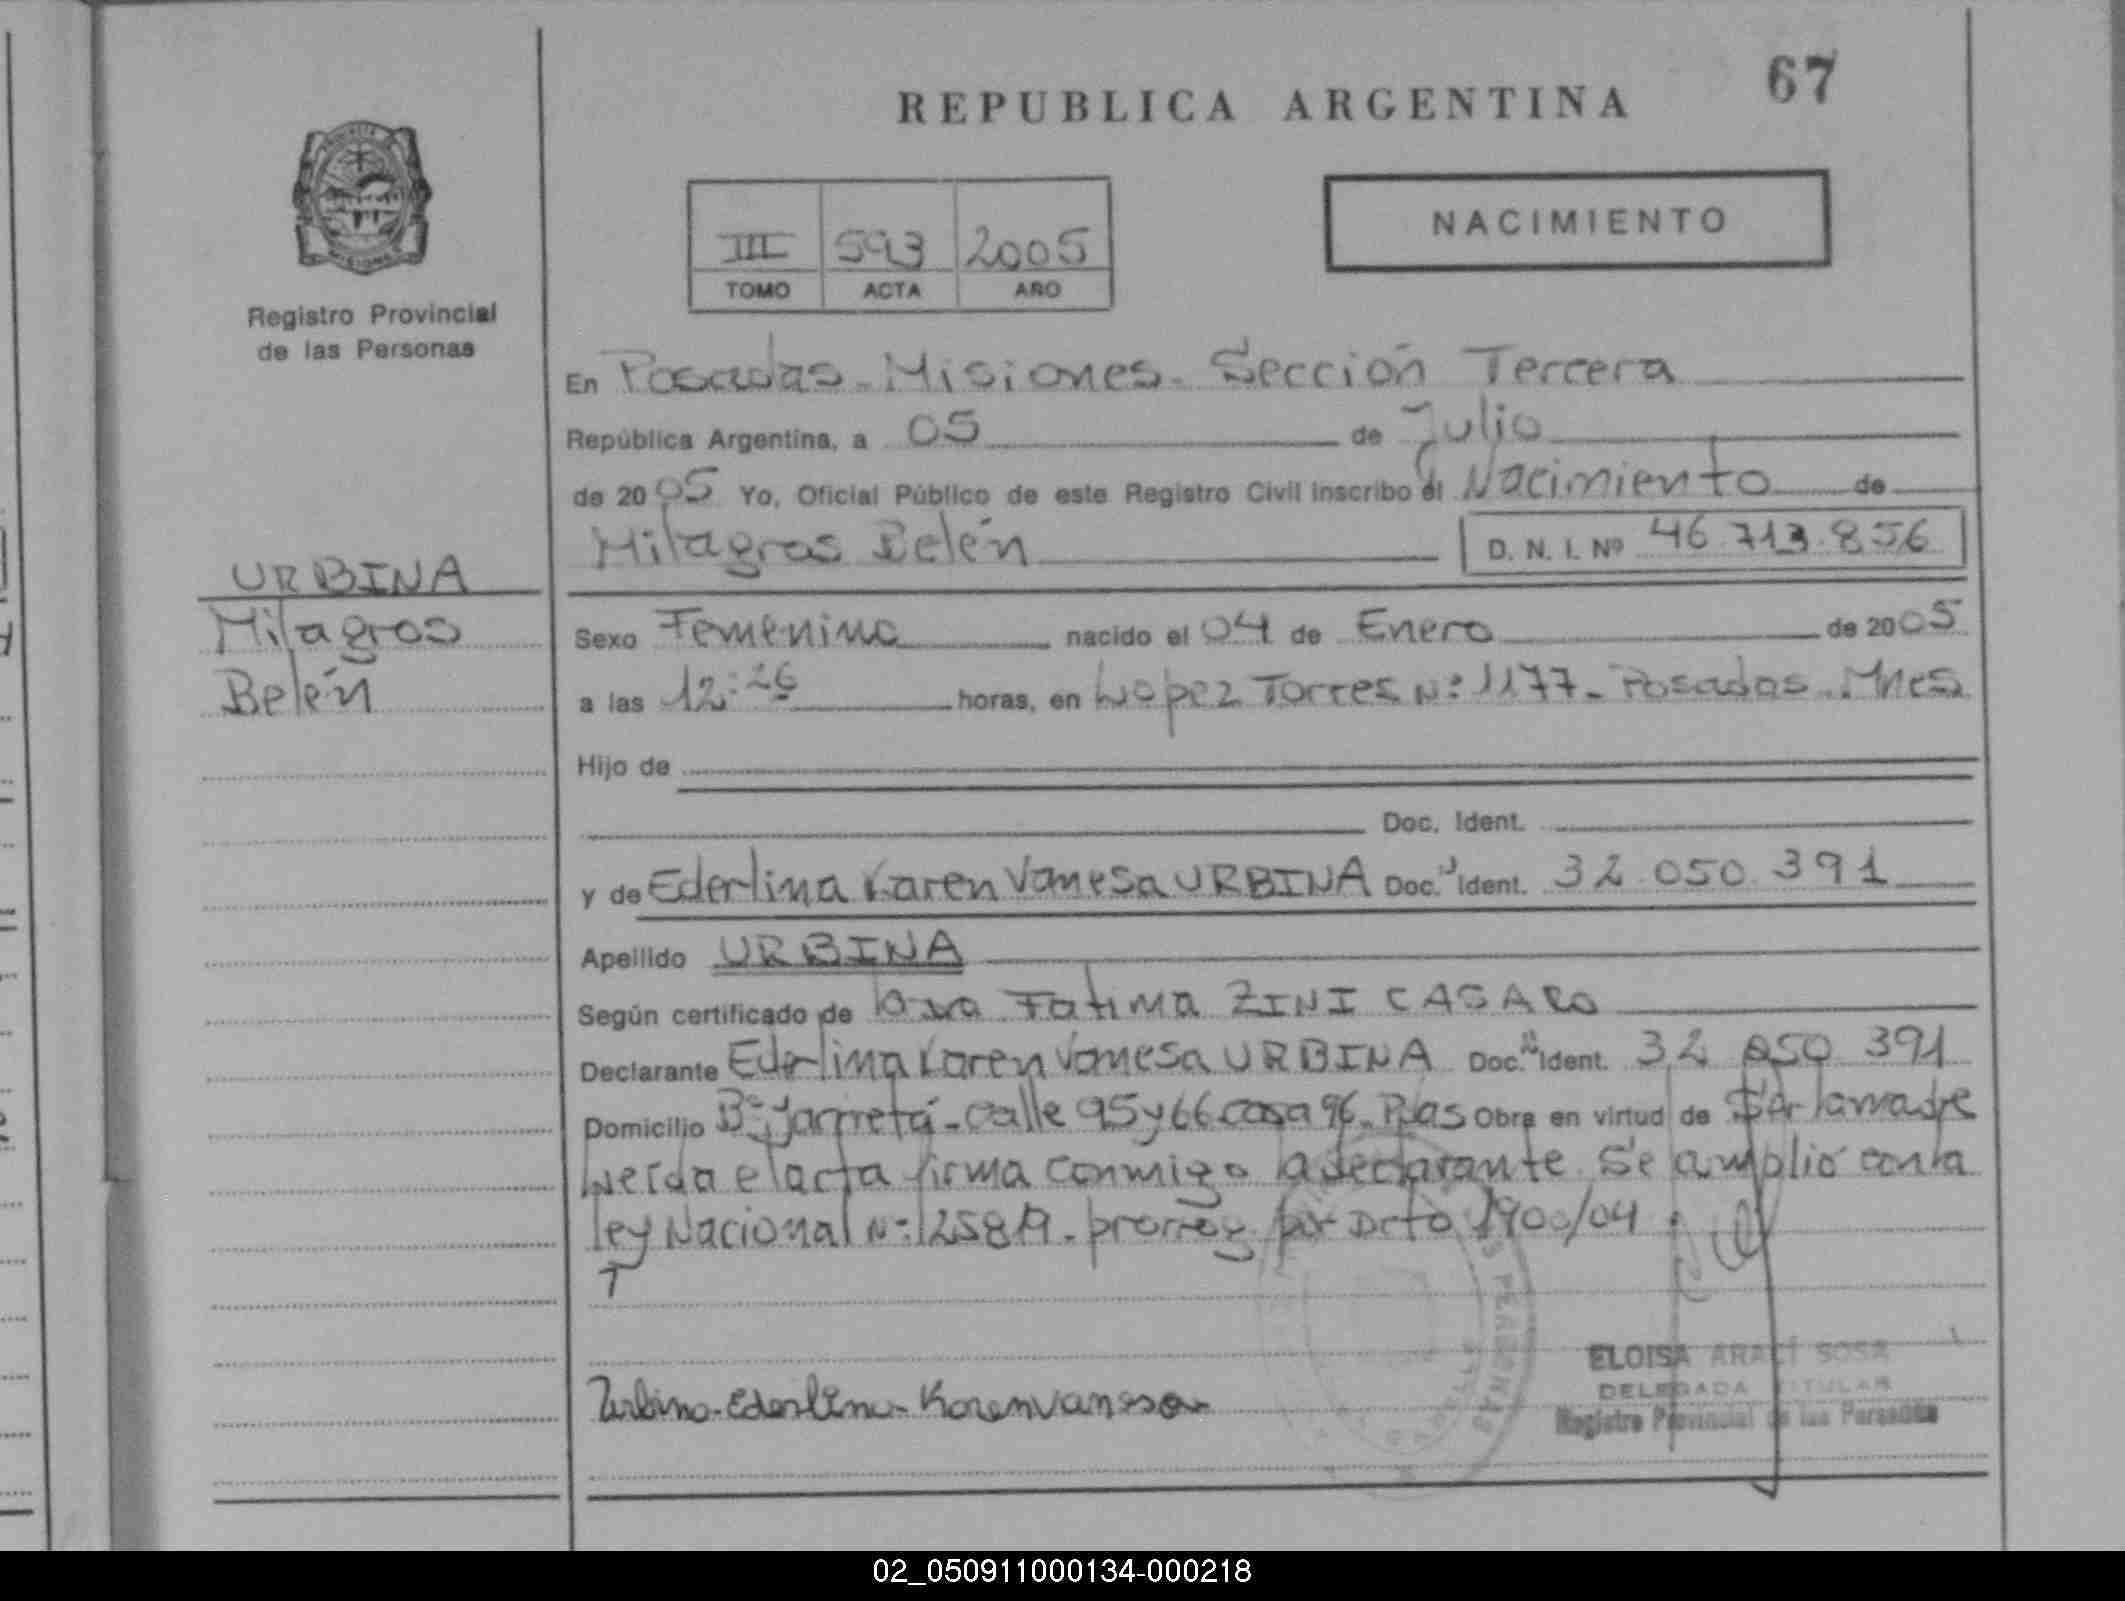 REPUBLICA ARGENTINA
67
Registro Provincial
de las Personas
III 593 2005
TOMO ACTA AÑO
NACIMIENTO
En Posadas - Misiones - Sección Tercera
República Argentina, a 05 de Julio
de 2005 Yo, Oficial Público de este Registro Civil inscribo el Nacimiento de
Milagros Belén D. N. I. Nº 46.713.856
URBINA
Milagros
Belén
Sexo Femenino nacido el 04 de Enero de 2005
a las 12:26 horas, en Lopez Torres Nº 1177 - Posadas - Mnes
Hijo de
Doc. Ident.
y de Ederlina Karen Vanesa URBINA Doc. Ident. 32.050.391
Apellido URBINA
Según certificado de Fatima ZINI CASARO
Declarante Ederlina Karen Vanesa URBINA Doc. Ident. 32 050 391
Domicilio Bº Yacyretá - calle 95 y 66 casa 96 - Pdas Obra en virtud de Ser la madre
Leída el acta firma conmigo la declarante. Se amplió con la
ley Nacional Nº 25819 - prorrog por Dcto 1900/04.
Urbina - Ederlina - Karen Vanessa
ELOISA ARACÍ SOSA
DELEGADA TITULAR
Registro Provincial de las Personas
02_050911000134-000218